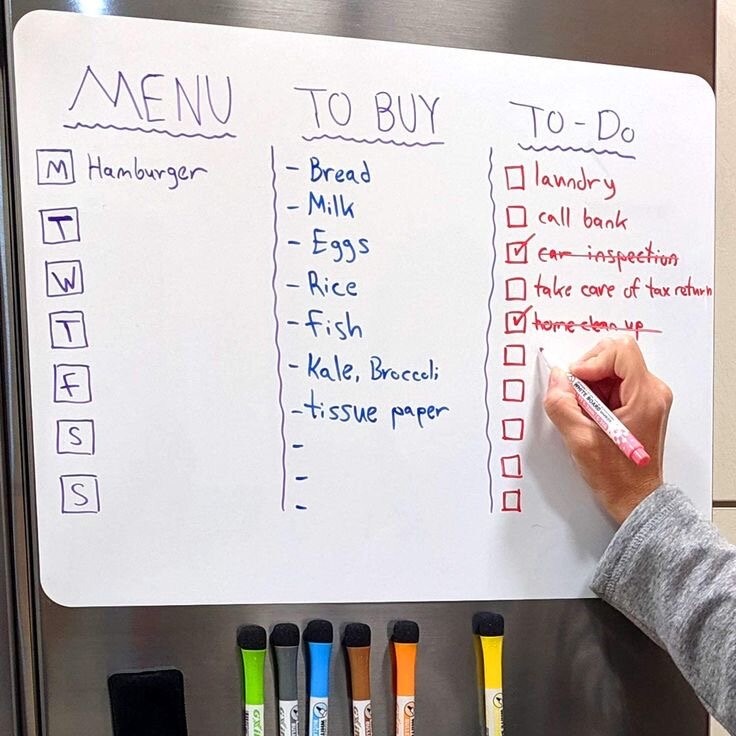 MENU
M Hamburger
T
W
T
F
S
S
TO BUY
- Bread
- Milk
- Eggs
- Rice
- Fish
- Kale, Broccoli
- tissue paper
-
-
-
TO-DO
laundry
call bank
car inspection
take care of tax return
home clean up
WHITE BOARD